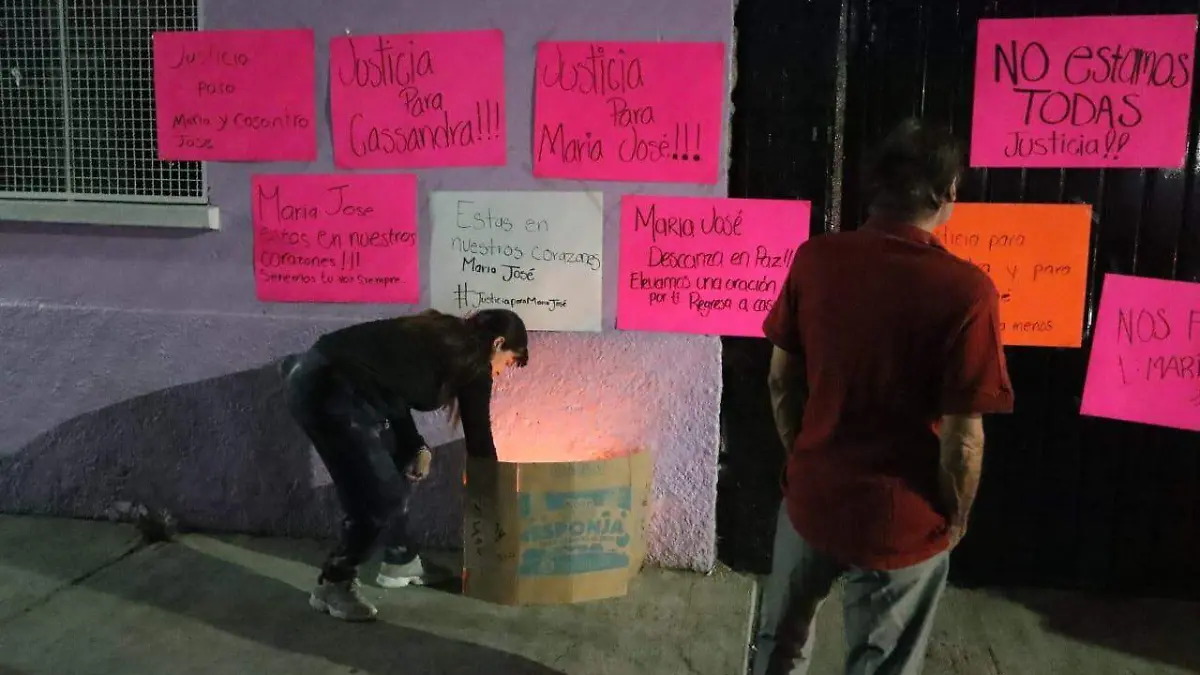 Justicia
para
Maria y Casandra
José
Justicia
Para
Cassandra!!!
Justicia
Para
Maria José!!!
NO estamos
TODAS
Justicia!!
Maria Jose
Estas en nuestros
corazones!!!
Seremos tu voz siempre...
Estas en
nuestros corazones
Maria José
#JusticiaparaMaríaJosé
Maria José
Descanza en Paz!!
Elevamos una oración
por ti Regresa a
ticia para
y para
é
menos
NOS F
MARI
ESPONJA